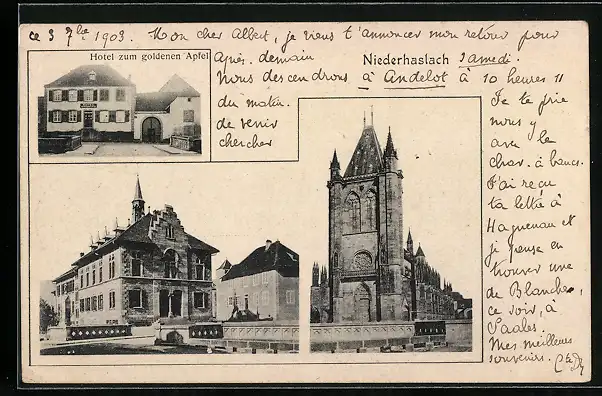 ce 3 7bre 1903. Mon cher Albert, je viens t'annoncer mon retour pour
Hotel zum goldenen Apfel
après-demain
Niederhaslach
samedi.
Nous descendrons à Andelot à 10 heures 11
du matin.
de venir
chercher
Je te prie
nous y
avec le
char. à bancs.
J'ai reçu
ta lettre à
Haguenau et
je pense en
trouver une
de Blanche,
ce soir, à
Saales.
Mes meilleurs
souvenirs.